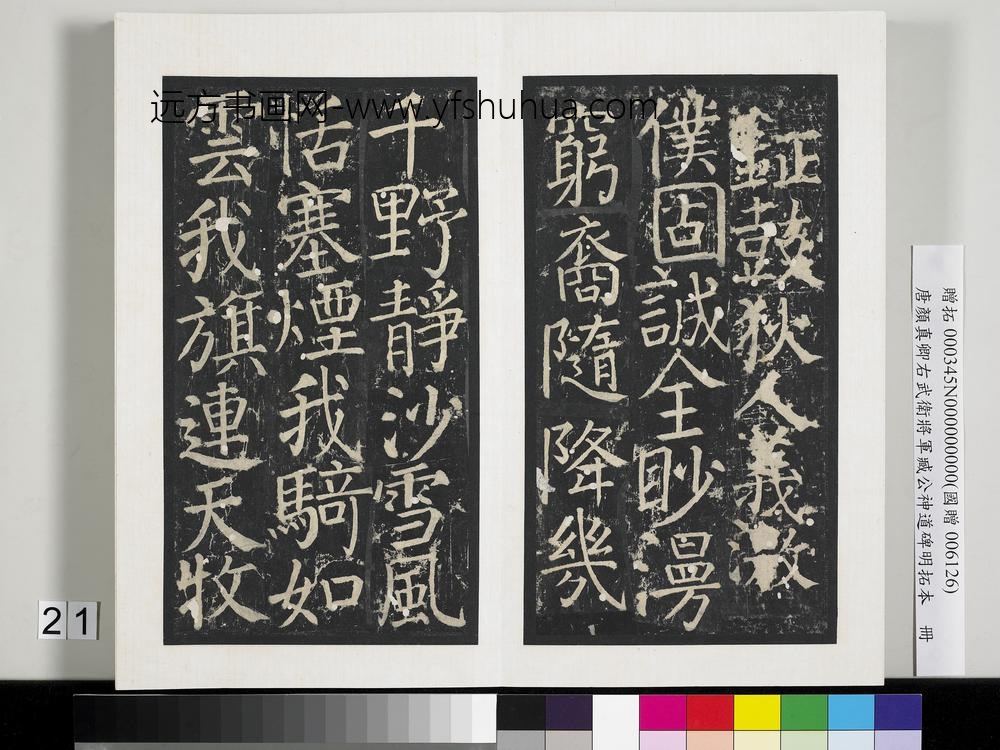 鉦鼓狄人義激
僕固誠全眇漫
窮裔隨降幾
千野靜沙雪風
恬塞煙我騎如
雲我旗連天牧
远方书画网-www.yfshuhua.com
贈拓 000345N000000000(國贈 006126)
唐顏真卿右武衛將軍臧公神道碑明拓本 冊
21